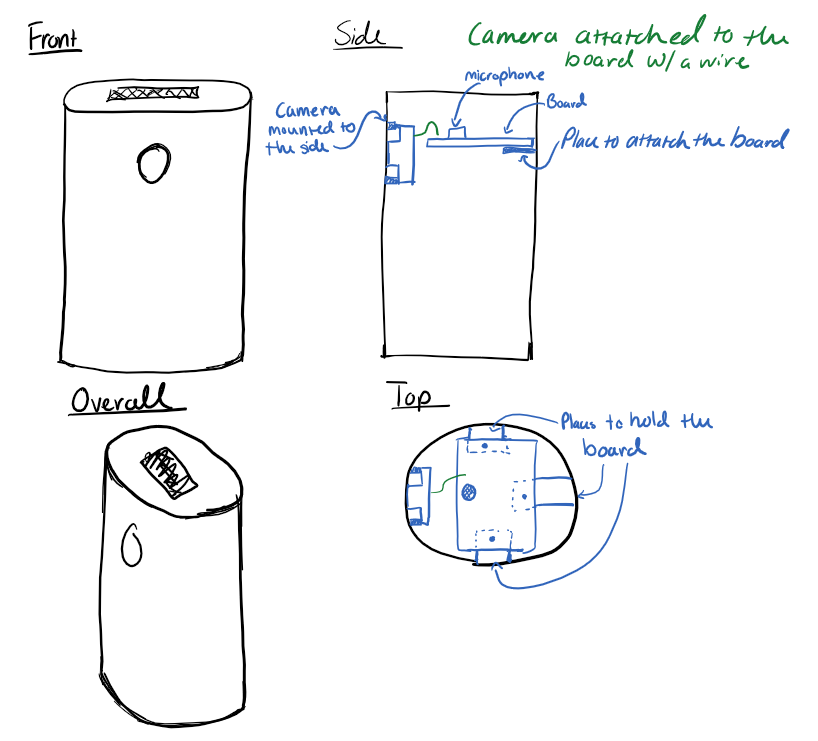 Front
Side
Camera attatched to the
board w/ a wire
microphone
Board
Camera
mounted to
the side
Place to attatch the board
Overall
Top
Places to hold the
board